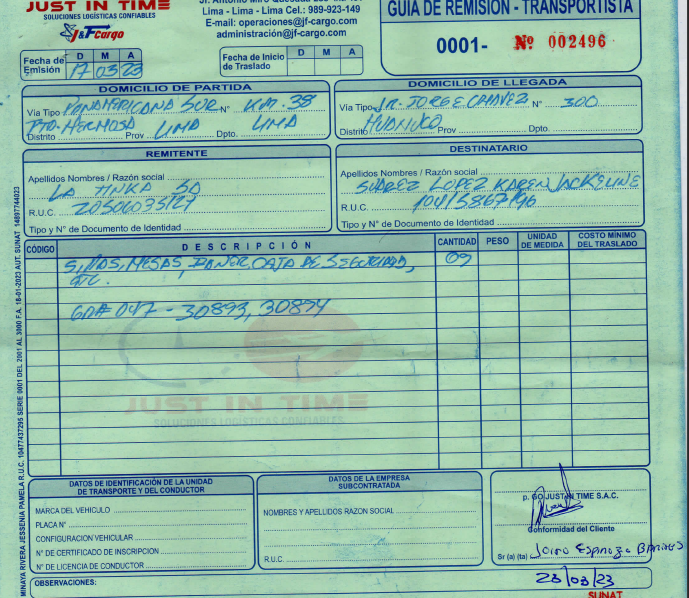 JUST IN TIME
SOLUCIONES LOGÍSTICAS CONFIABLES
J&F Cargo
Lima - Lima Cel.: 989-923-149
E-mail: operaciones@jf-cargo.com
administración@jf-cargo.com
GUIA DE REMISIÓN - TRANSPORTISTA
0001- Nº 002496
Fecha de Emisión D M A
17 03 23
Fecha de Inicio de Traslado D M A
DOMICILIO DE PARTIDA
Via Tipo PANAMERICANA SUR N° KM. 38
Distrito PTO. HERMOSA Prov LIMA Dpto. LIMA
DOMICILIO DE LLEGADA
Via Tipo JR. JORGE CHAVEZ N° 300
Distrito HUANUCO Prov Dpto.
REMITENTE
Apellidos Nombres / Razón social
LA TINKA SA
R.U.C.
Tipo y N° de Documento de Identidad
DESTINATARIO
Apellidos Nombres / Razón social
SUAREZ LOPEZ KAREN JACKELINE
R.U.C. 10415867196
Tipo y N° de Documento de Identidad
CÓDIGO DESCRIPCIÓN CANTIDAD PESO UNIDAD DE MEDIDA COSTO MÍNIMO DEL TRASLADO
SILLAS, MESAS, BANER, CAJA DE SEGURIDAD, 09
ETC.
047 - 30893, 30894
JUST IN TIME
SOLUCIONES LOGÍSTICAS CONFIABLES
MINAYA RIVERA JESSENIA PAMELA R.U.C. 10477437295 SERIE 0001 DEL 2001 AL 3000 F.A. 18-01-2023 AUT. SUNAT 14697744023
DATOS DE IDENTIFICACIÓN DE LA UNIDAD
DE TRANSPORTE Y DEL CONDUCTOR
MARCA DEL VEHICULO
PLACA N°
CONFIGURACION VEHICULAR
N° DE CERTIFICADO DE INSCRIPCION
N° DE LICENCIA DE CONDUCTOR
DATOS DE LA EMPRESA
SUBCONTRATADA
NOMBRES Y APELLIDOS RAZON SOCIAL
R.U.C.
p. GO JUSTIN TIME S.A.C.
Conformidad del Cliente
Sr (a) (ta) Jairo Espinoza
23/03/23
OBSERVACIONES:
SUNAT